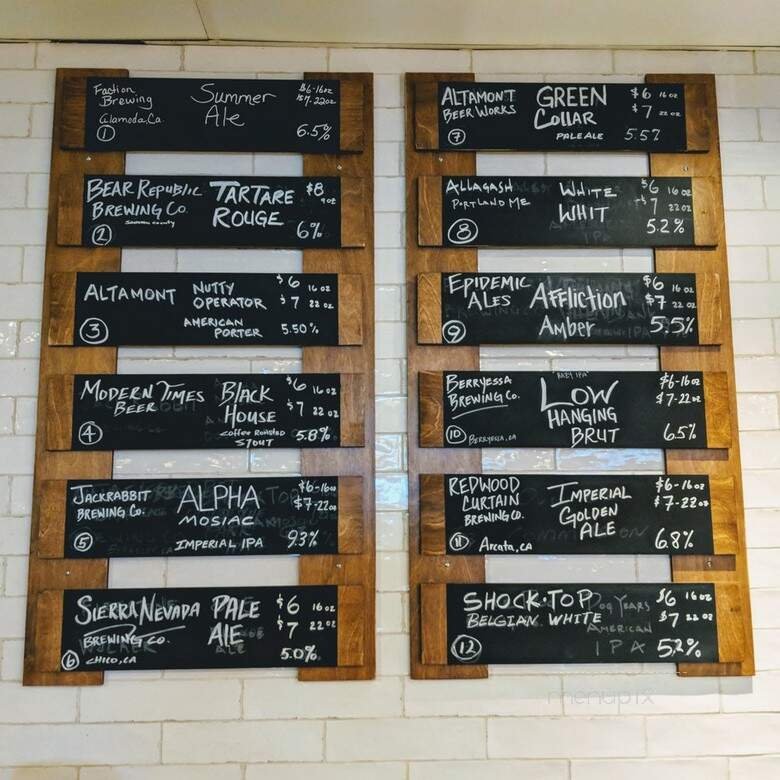 Faction Brewing Summer Ale $6-16oz
$7-22oz
Alameda, Ca.
1 6.5%
BEAR REPUBLIC BREWING CO. TARTARE ROUGE $8 9oz
2 6%
ALTAMONT NUTTY OPERATOR $6 16 oz
$7 22 oz
3 AMERICAN PORTER 5.50%
MODERN TIMES BEER BLACK HOUSE $6 16 oz
$7 22 oz
4 coffee Roasted STOUT 5.8%
JACKRABBIT BREWING Co. ALPHA MOSIAC $6-16oz
$7-22oz
5 IMPERIAL IPA 9.3%
SIERRA NEVADA BREWING CO. PALE ALE $6 16 oz
$7 22 oz
6 CHICO, CA 5.0%
ALTAMONT BEER WORKS GREEN Collar $6 16 oz
$7 22 oz
7 PALE ALE 5.5%
ALLAGASH PORTLAND ME WHITE WHIT $6 16 oz
$7 22 oz
8 5.2%
EPIDEMIC ALES Affliction Amber $6 16 oz
$7 22 oz
9 5.5%
BERRYESSA BREWING Co. LOW HANGING BRUT $6-16oz
$7-22oz
10 6.5%
REDWOOD CURTAIN BREWING CO. IMPERIAL GOLDEN ALE $6-16oz
$7-22oz
11 Arcata, CA 6.8%
SHOCK·TOP BELGIAN WHITE $6 16 oz
$7 22 oz
Dog YEARS AMERICAN IPA
12 5.2%
menupix